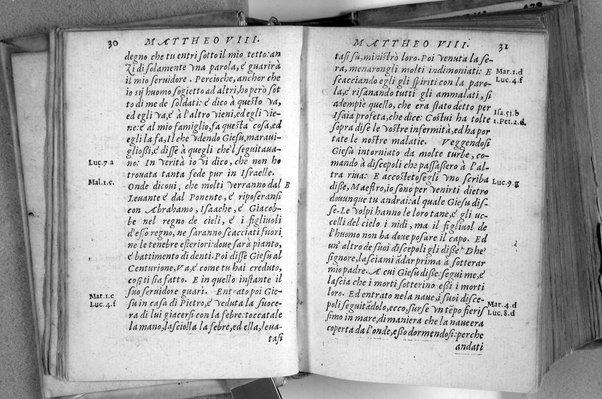 30 MATTHEO VIII.
degno che tu entri sotto il mio tetto: an
Zi di solamente vna parola, e' guarirà
il mio seruidore. Percioche, anchor che
io sij huomo sogietto ad altri, ho però sot
to di me de soldati: e' dico à questo va,
ed egli va, e' à l'altro vieni, ed egli vie
ne: e' al mio famiglio, fa questa cosa, ed
egli la fa. Il che vdendo Giesu, maraui-
gliossi, e' disse à quegli che l'seguitaua-
Luc.7.a no: In verità io vi dico, che non ho
trouata tanta fede pur in Israelle.
Mal.1.c. Onde diconi, che molti verranno dal B
Leuante e' dal Ponente, e' riposeransi
con Abrahamo, Isaache, e' Giacob-
be nel regno de cieli, e' i figliuoli
d'esso regno, ne saranno scacciati fuori
ne le tenebre esteriori: doue sarà pianto,
e' battimento di denti. Poi disse Giesu al
Centurione, Va, e' come tu hai creduto,
cosi ti sia fatto. E in quello instante il
suo seruidore guarì. Entrato poi Gie-
Mar.1.c su in casa di Pietro, e' veduta la suoce
Luc.4.f ra di lui giacersi con la febre: toccatale
la mano, lasciolla la febre, ed ella, leua-
tasi
MATTHEO VIII. 31
tasi sù, ministrò loro. Poi venuta la se-
ra, menarongli molti indimoniati: E Mar.1.d
scacciando egli gli spiriti con la paro- Luc.4.f
la, e' risanando tutti gli ammalati, si
adempiè quello, che era stato detto per
Isaia profeta, che dice: Costui ha tolte Isa.51.b
sopra disse le vostre infermità, ed ha por 1.Pet.2.d.
tate le nostre malatie. Veggendosi
Giesu intorniato da molte turbe, co-
mandò à discepoli che passassero à l'al-
tra riua: E accostatosegli vno scriba Luc.9.g
disse, Maestro, io sono per venirti dietro
douunque tu andrai: al quale Giesu dis-
se. Le volpi hanno le loro tane, e' gli uc-
celli del cielo i nidi, ma il figliuol de
l'huomo non ha doue posare il capo. Ed
un'altro de suoi discepoli gli disse: Dhe
signore, lasciami andar prima à sotterar
mio padre. A cui Giesu disse: segui me, e'
lascia che i morti sotterino essi i morti
loro. Ed entrato ne la naue, i suoi disce- Mar.4.d
poli seguitadolo, ecco, surse vn tēpo fieris Luc.8.d
simo in mare, di maniera che la naue era
coperta da l'onde, e esso dormendosi: perche
andati